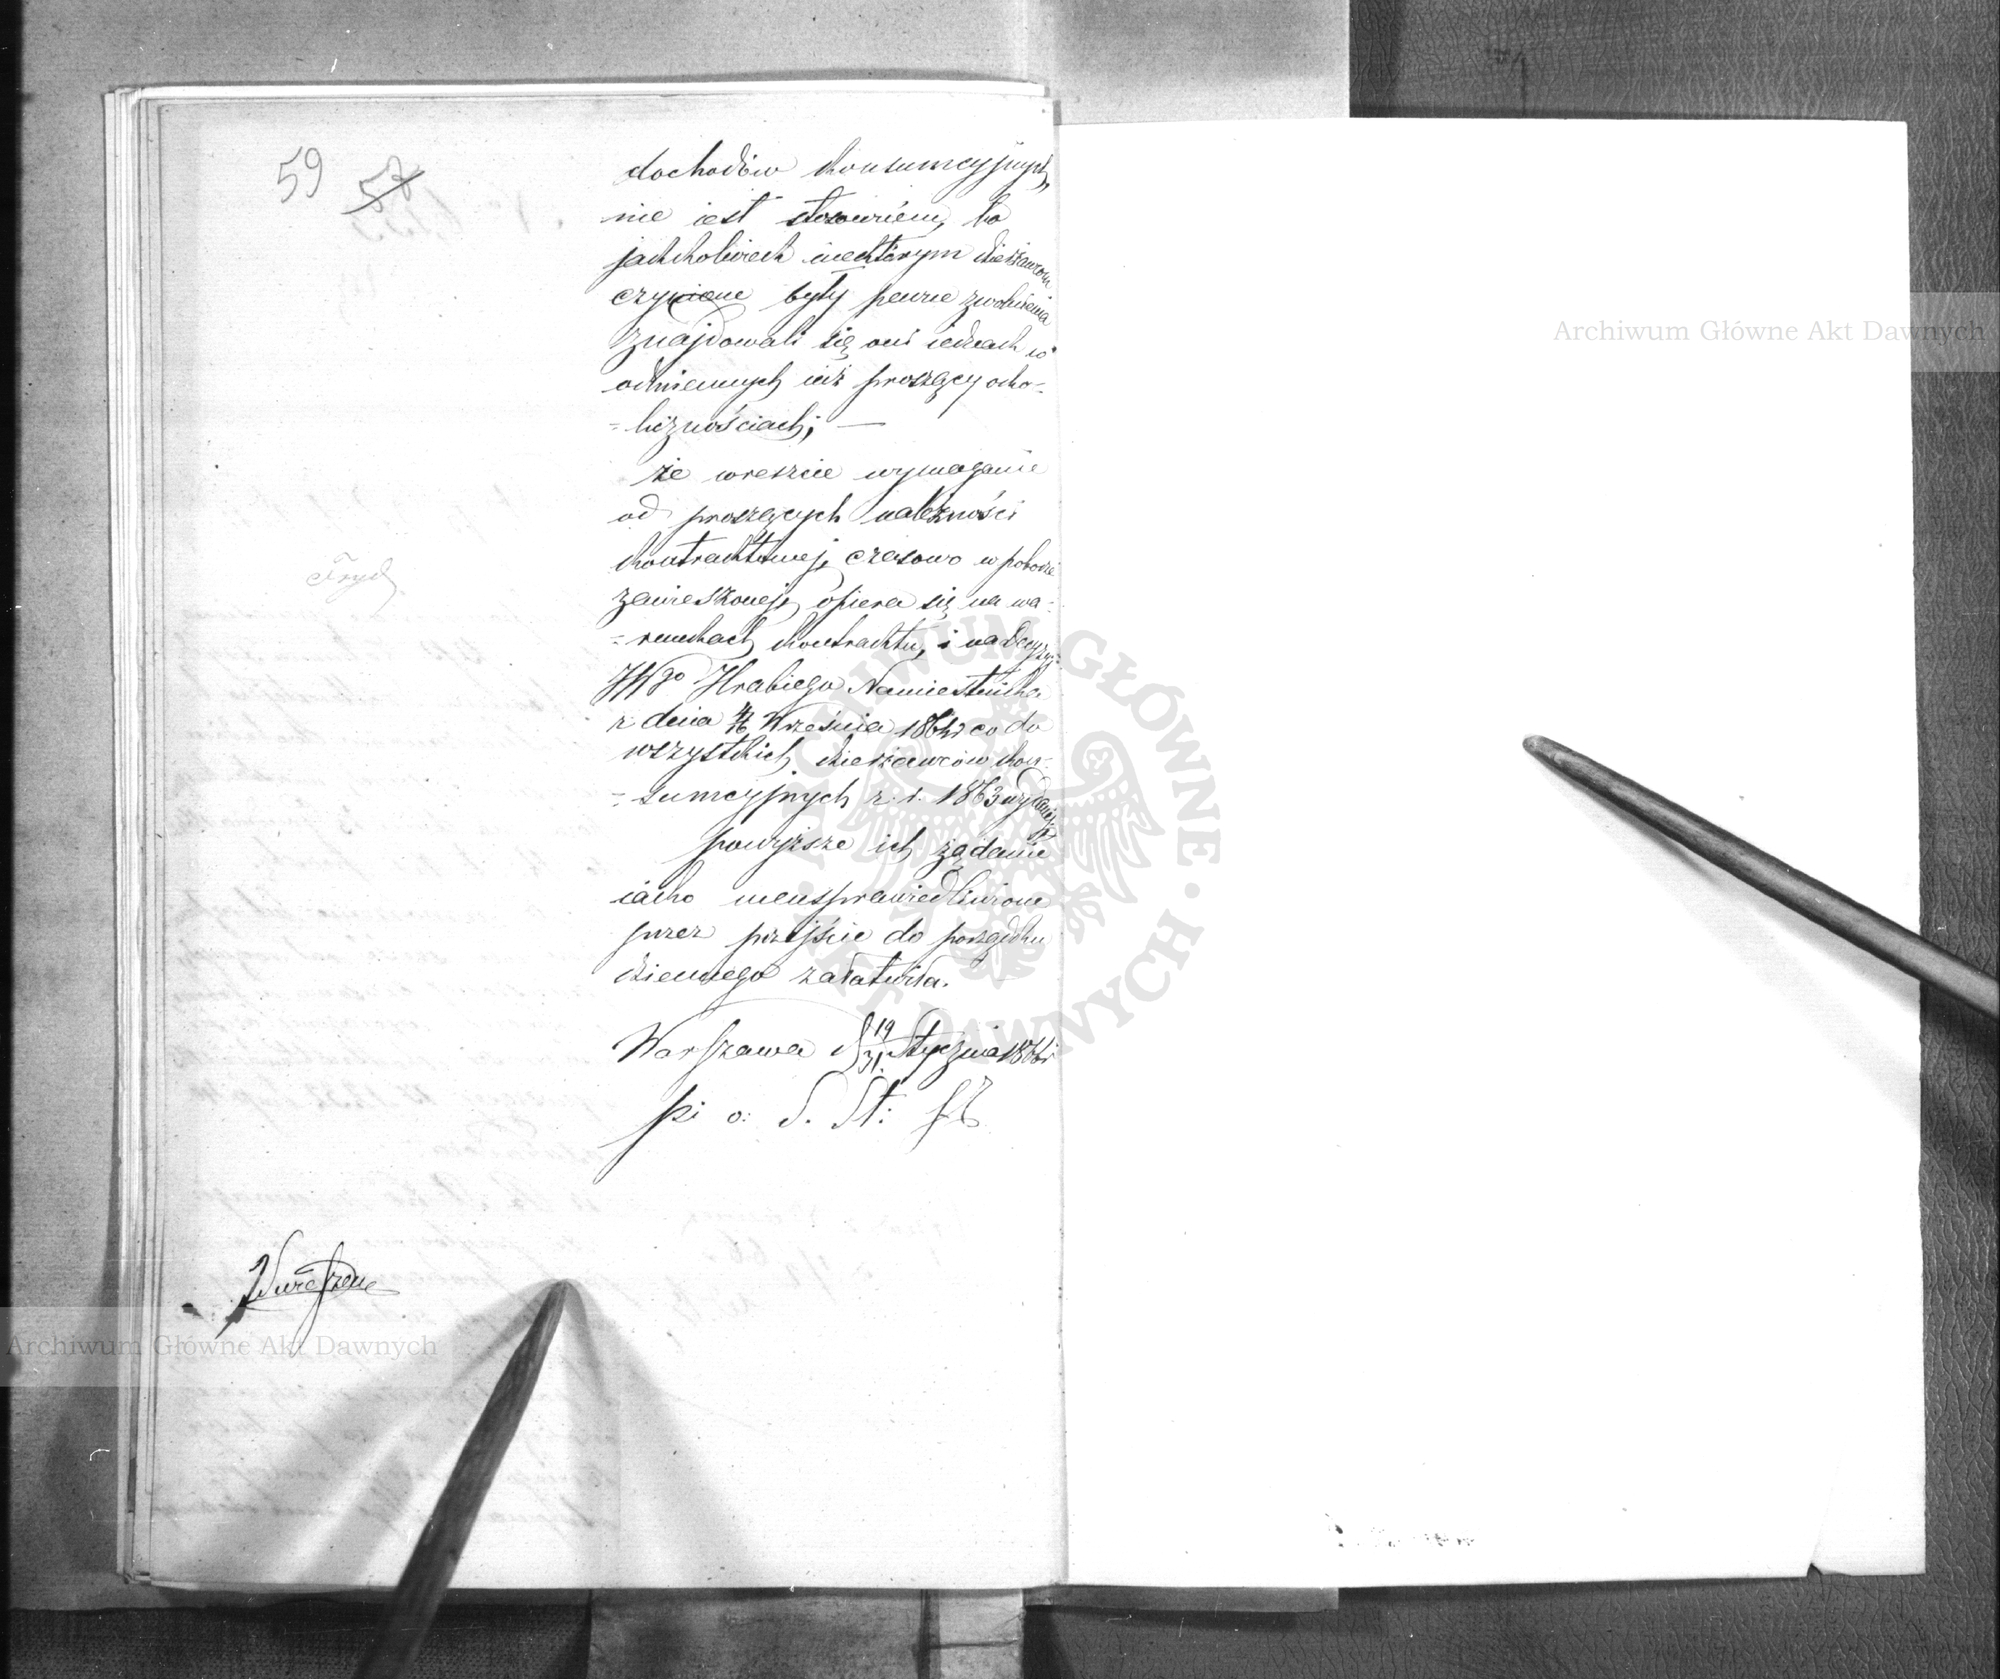 59 58
dochodów konsumcyjnych,
nie jest stosownem, bo
jakkolwiek niektórym dzierżawcom
czynione były pewne zwolnienia
znajdowali się oni jednak w
odmiennych niż proszący oko-
=licznościach; —
że wreszcie wymaganie
od proszących należności
kontraktowej, czasowo w poborze
zawieszonej, opiera się na wa-
=runkach kontraktu, i na Decyzji
JWgo Hrabiego Namiestnika
z dnia 4/16 Września 1864 r co do
wszystkich dzierżawców kon-
=sumcyjnych z r. 1863 wydanej,
powyższe ich żądanie
jako nieusprawiedliwione
przez przejście do porządku
dziennego załatwiła.
Warszawa d 19/31 Stycznia 1866 r
p. o. S. St:
Archiwum Główne Akt Dawnych
Archiwum Główne Akt Dawnych
ARCHIWUM GŁÓWNE AKT DAWNYCH